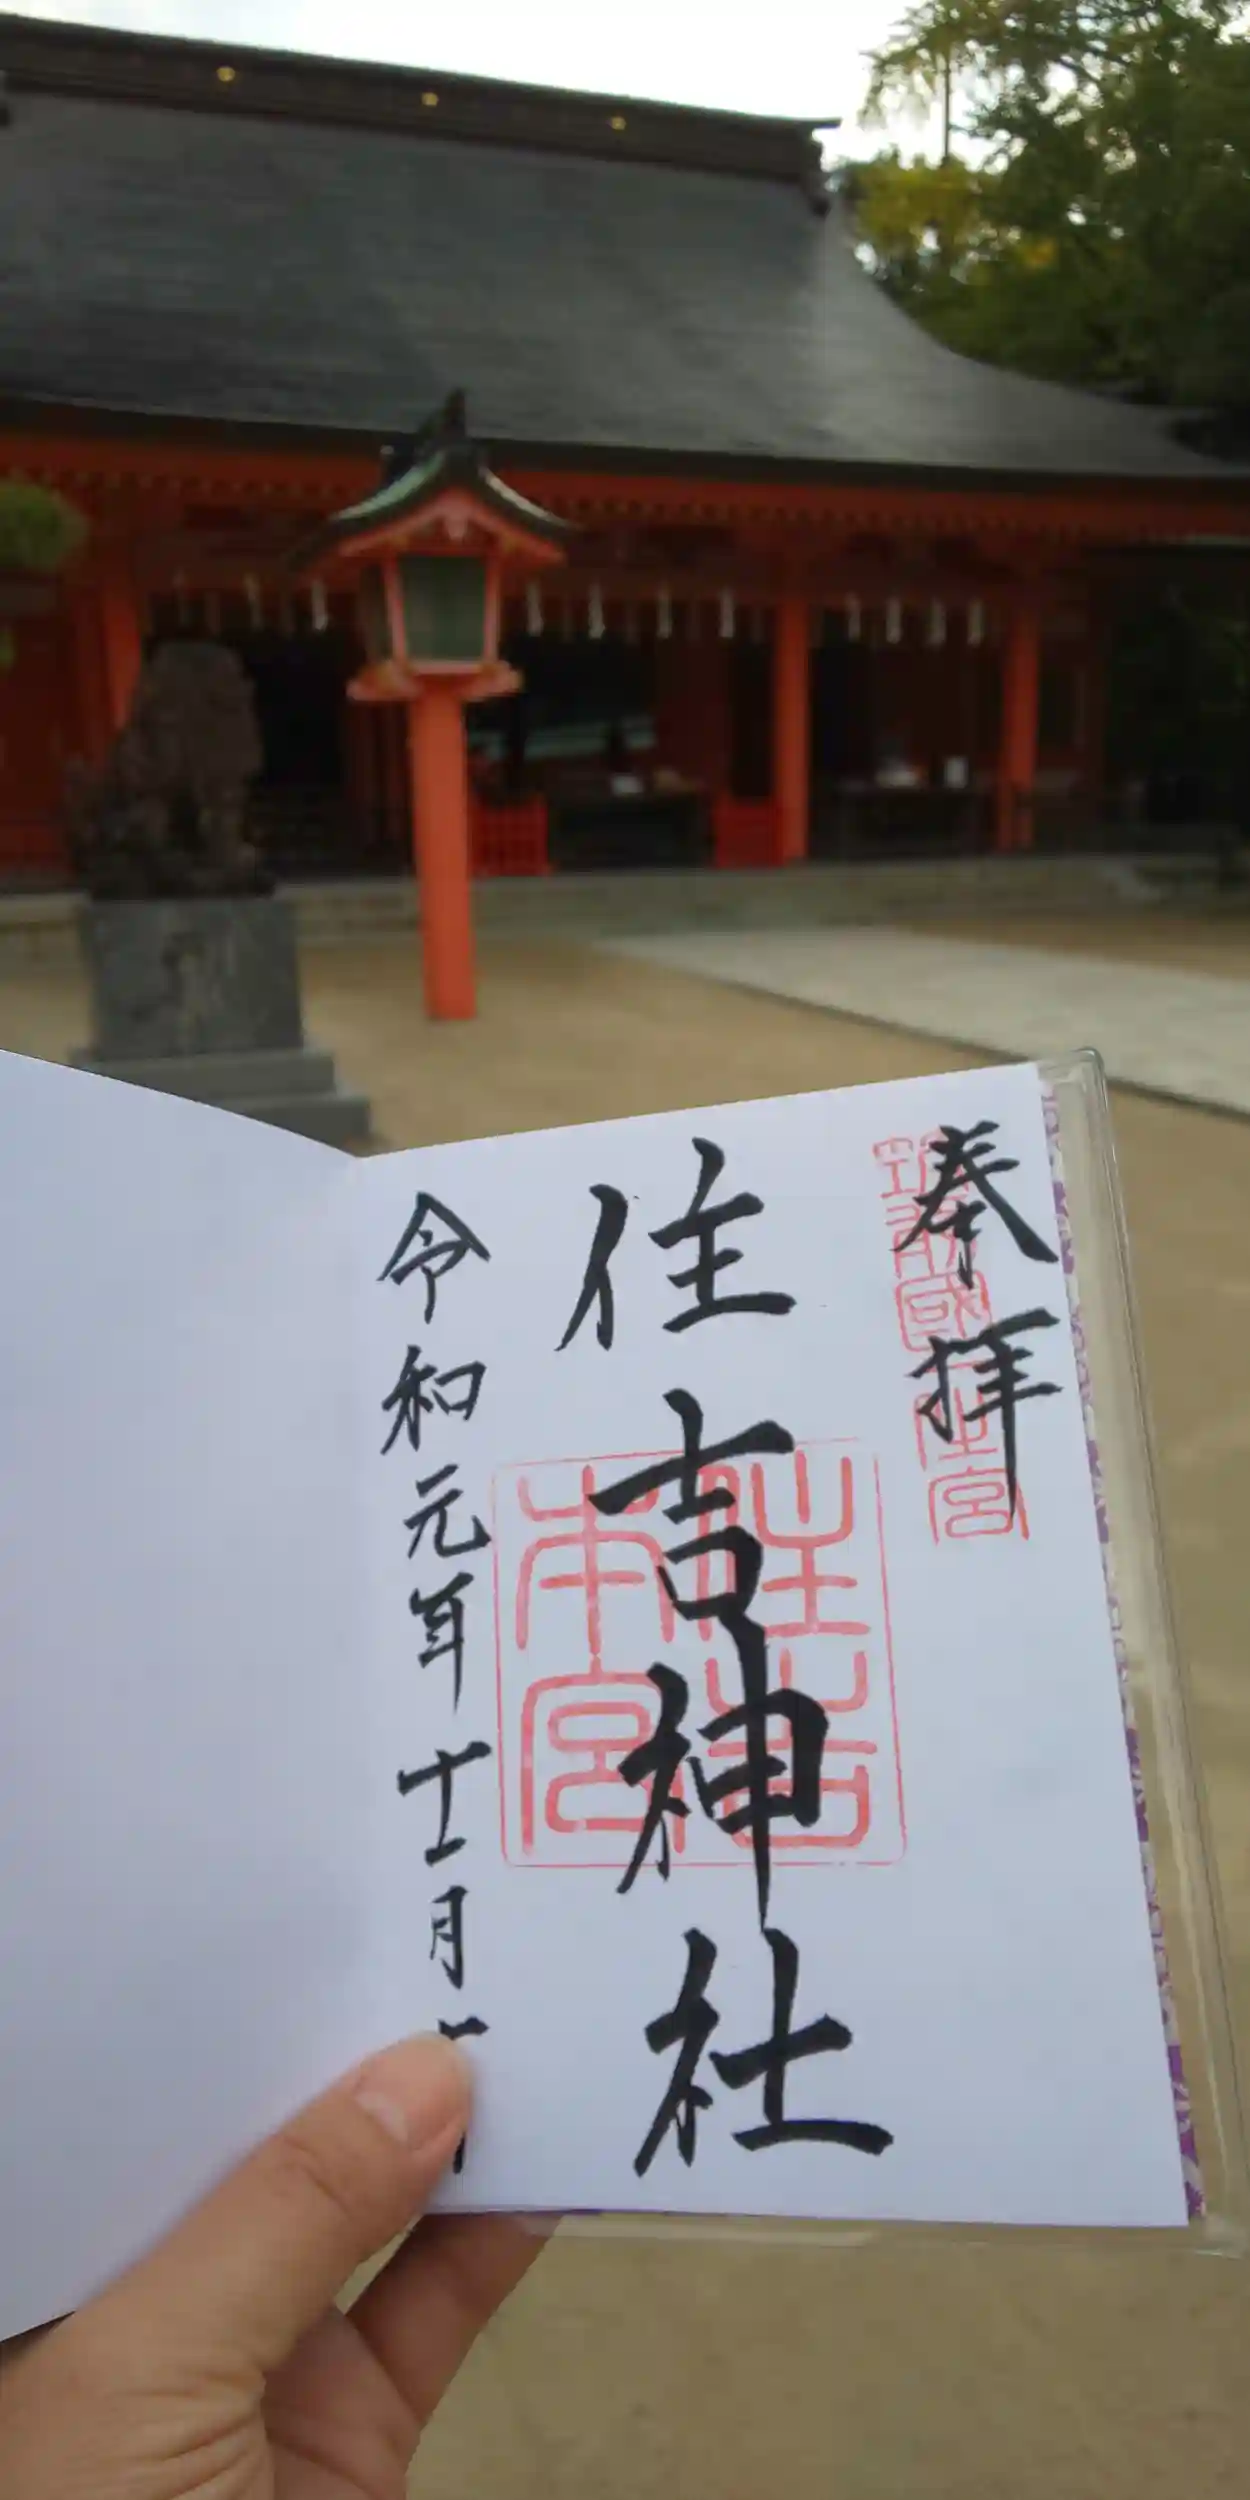 奉拝
筑前國一之宮
住吉神社
住吉本宮
令和元年十一月